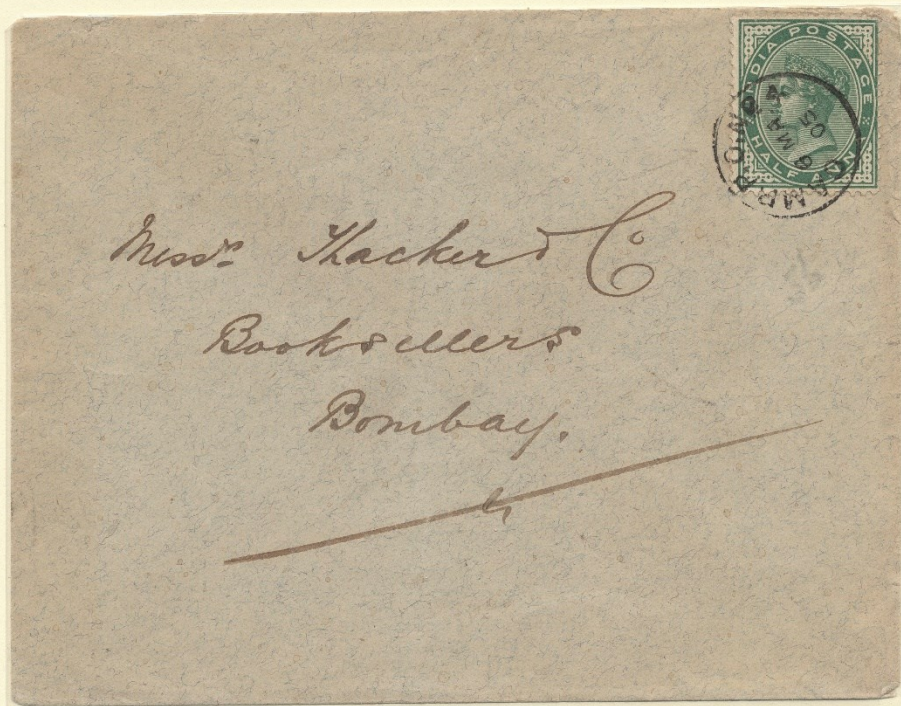 INDIA POSTAGE
HALF ANN
6 MA
05
Messrs Thacker & Co
Booksellers
Bombay.